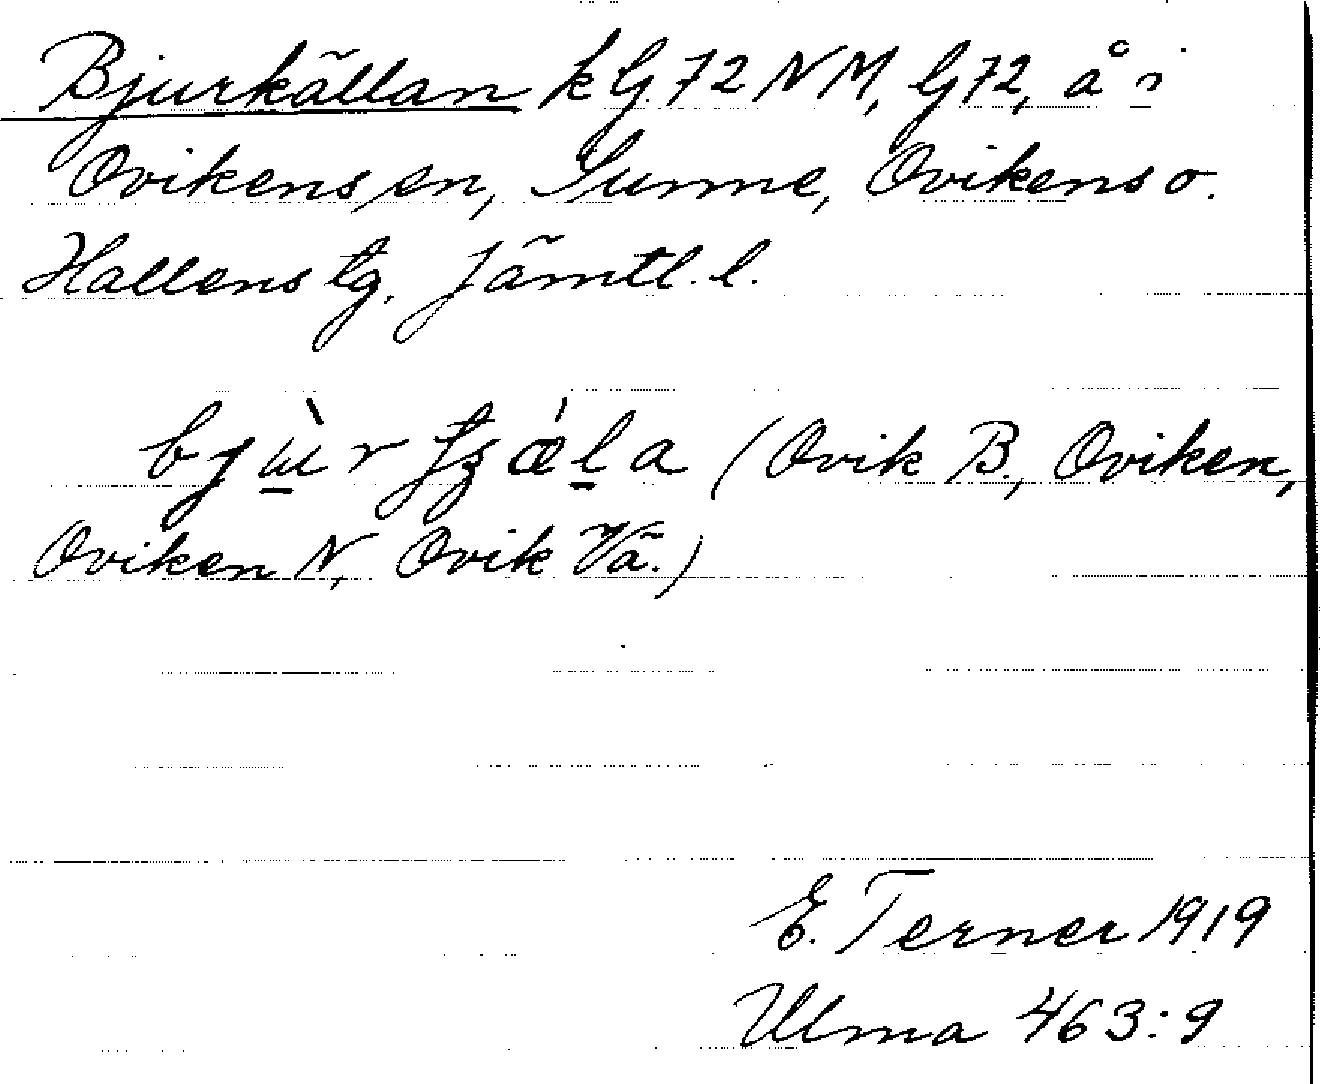 Bjurkällan k G 72 NM, G 72, å i
Ovikens sn, Sunne, Ovikens o.
Hallens tg. Jämtl. l.
(Ovik B., Oviken,
Oviken N, Ovik Vä.)
E. Terner 1919
Ulma 463:9